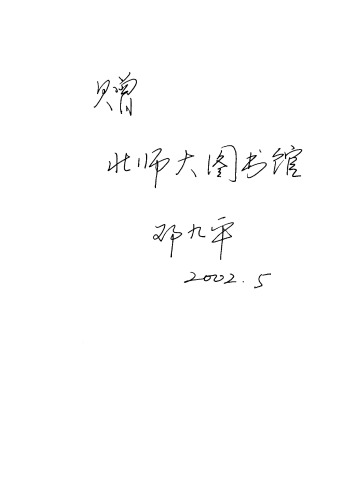 赠
北师大图书馆
邓九平
2002.5